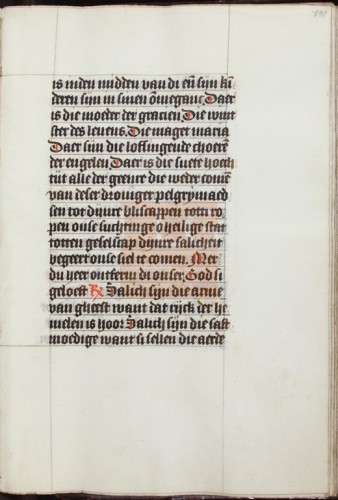 is inden midden van di en̄ sijn kī
deren sijn in sinen ōmeganc. Daer
is die moeder der gracien. Die wint
ster des leuens. Die maget maria
Daer sijn die loffingende choeren
der engelen. Daer is die suete hoech
tijt alle der geenre die weder comē
van deser droniger pelgrymaed
sen tot dijnre bliscappen totti ro
pen onse suchtinge o heilige stat
totten geselscap dijnre salicheit
begeert onse siel te comen. Mer
du heer ontferm di onser. God si
geloeft Salich sijn die arme
van gheest want dat rijck der he
melen is hoor Salich sijn die saft
moedige want si sellen die aerde